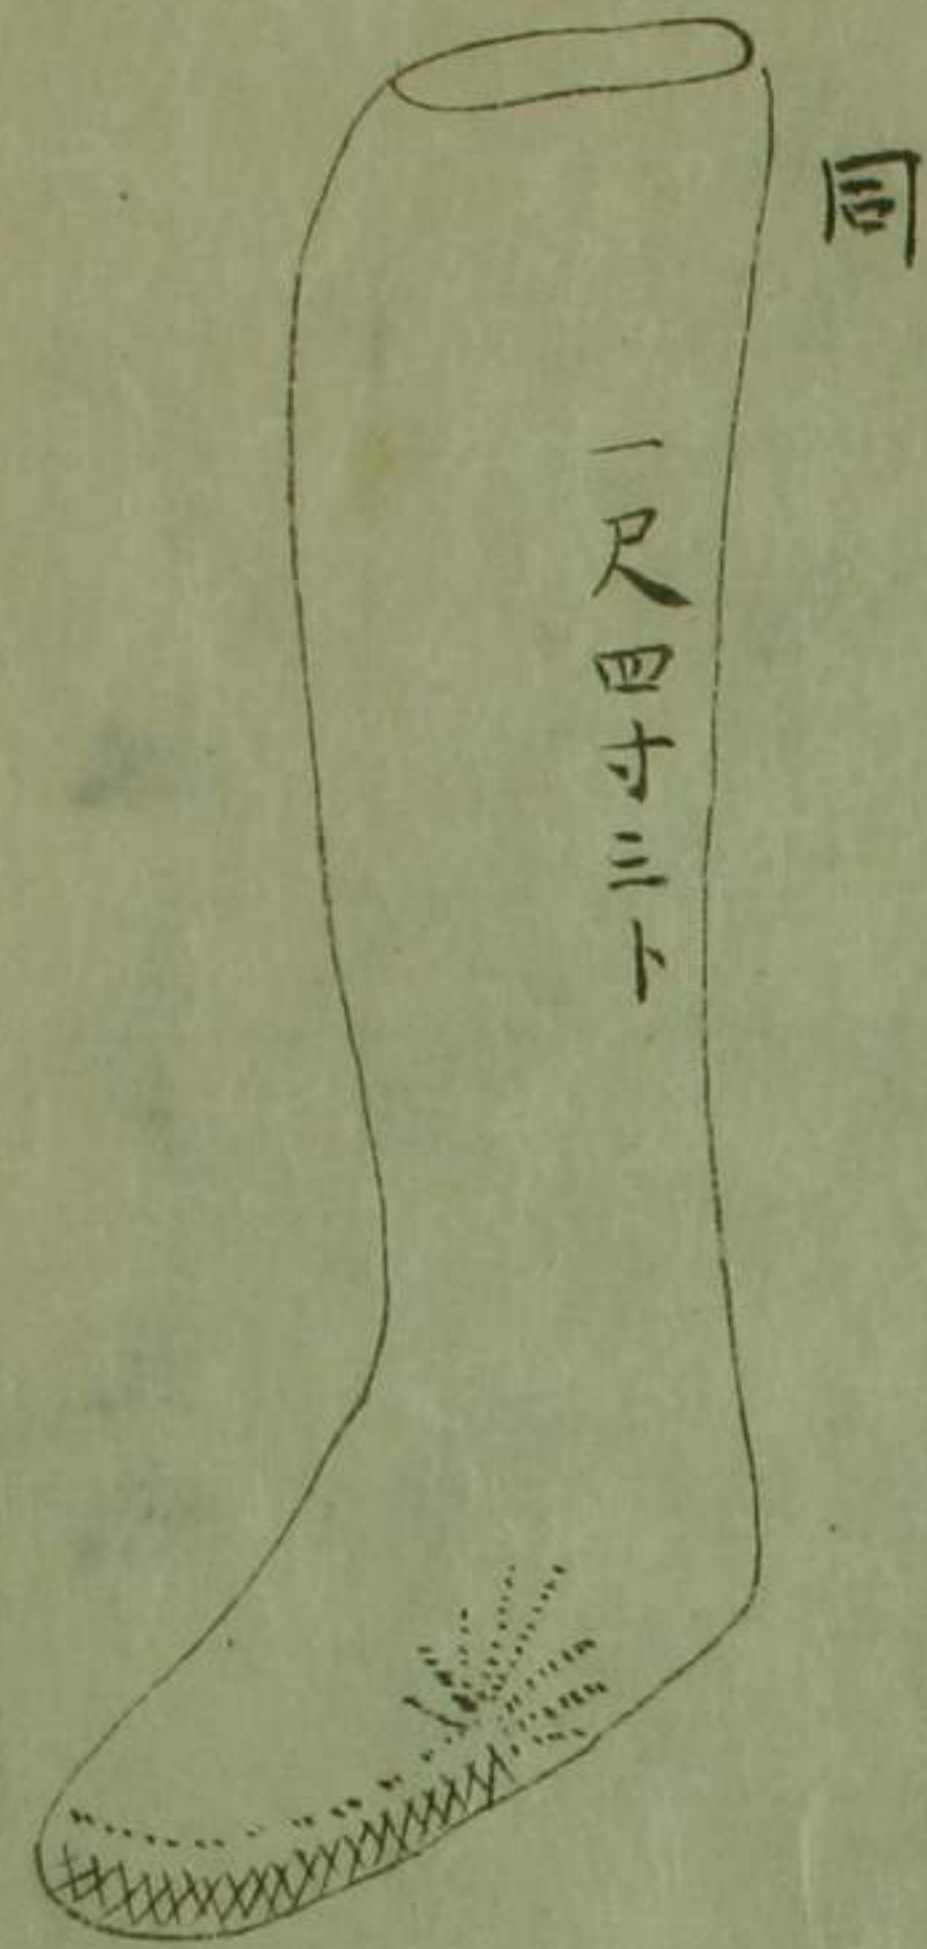 同
一尺四寸三卜